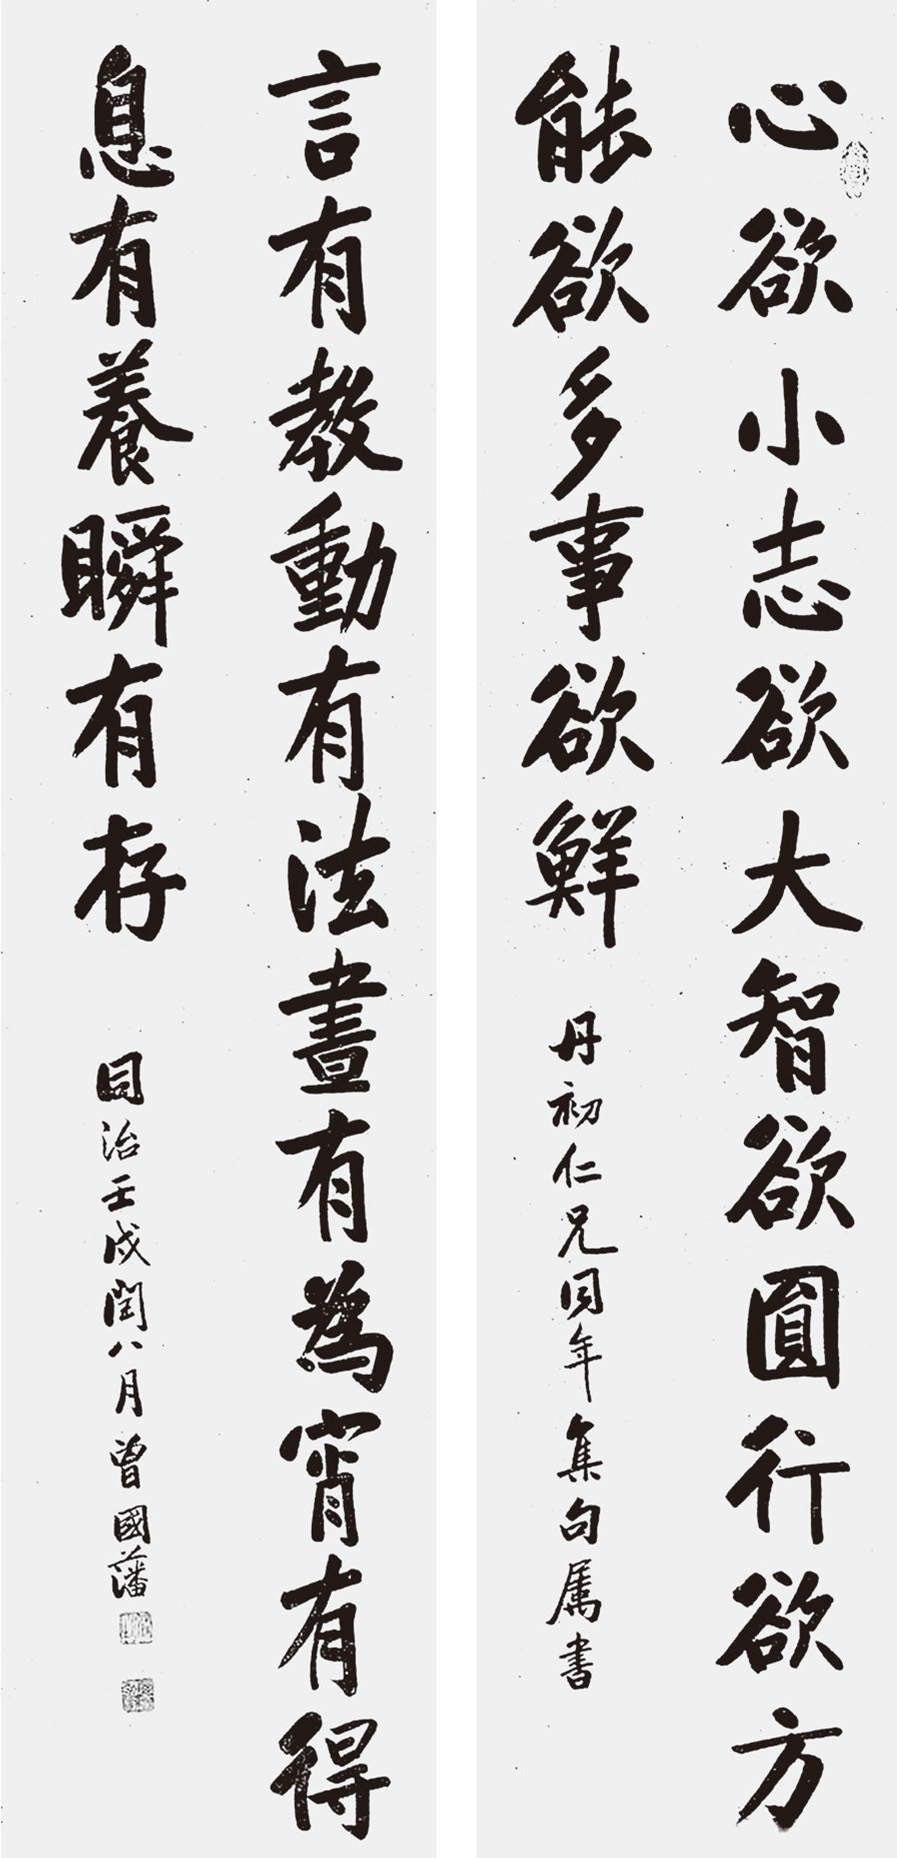 心欲小志欲大智欲圓行欲方
能欲多事欲鮮
丹初仁兄同年集句属書
言有教動有法晝有為宵有得
息有養瞬有存
同治壬戌閏八月曾國藩